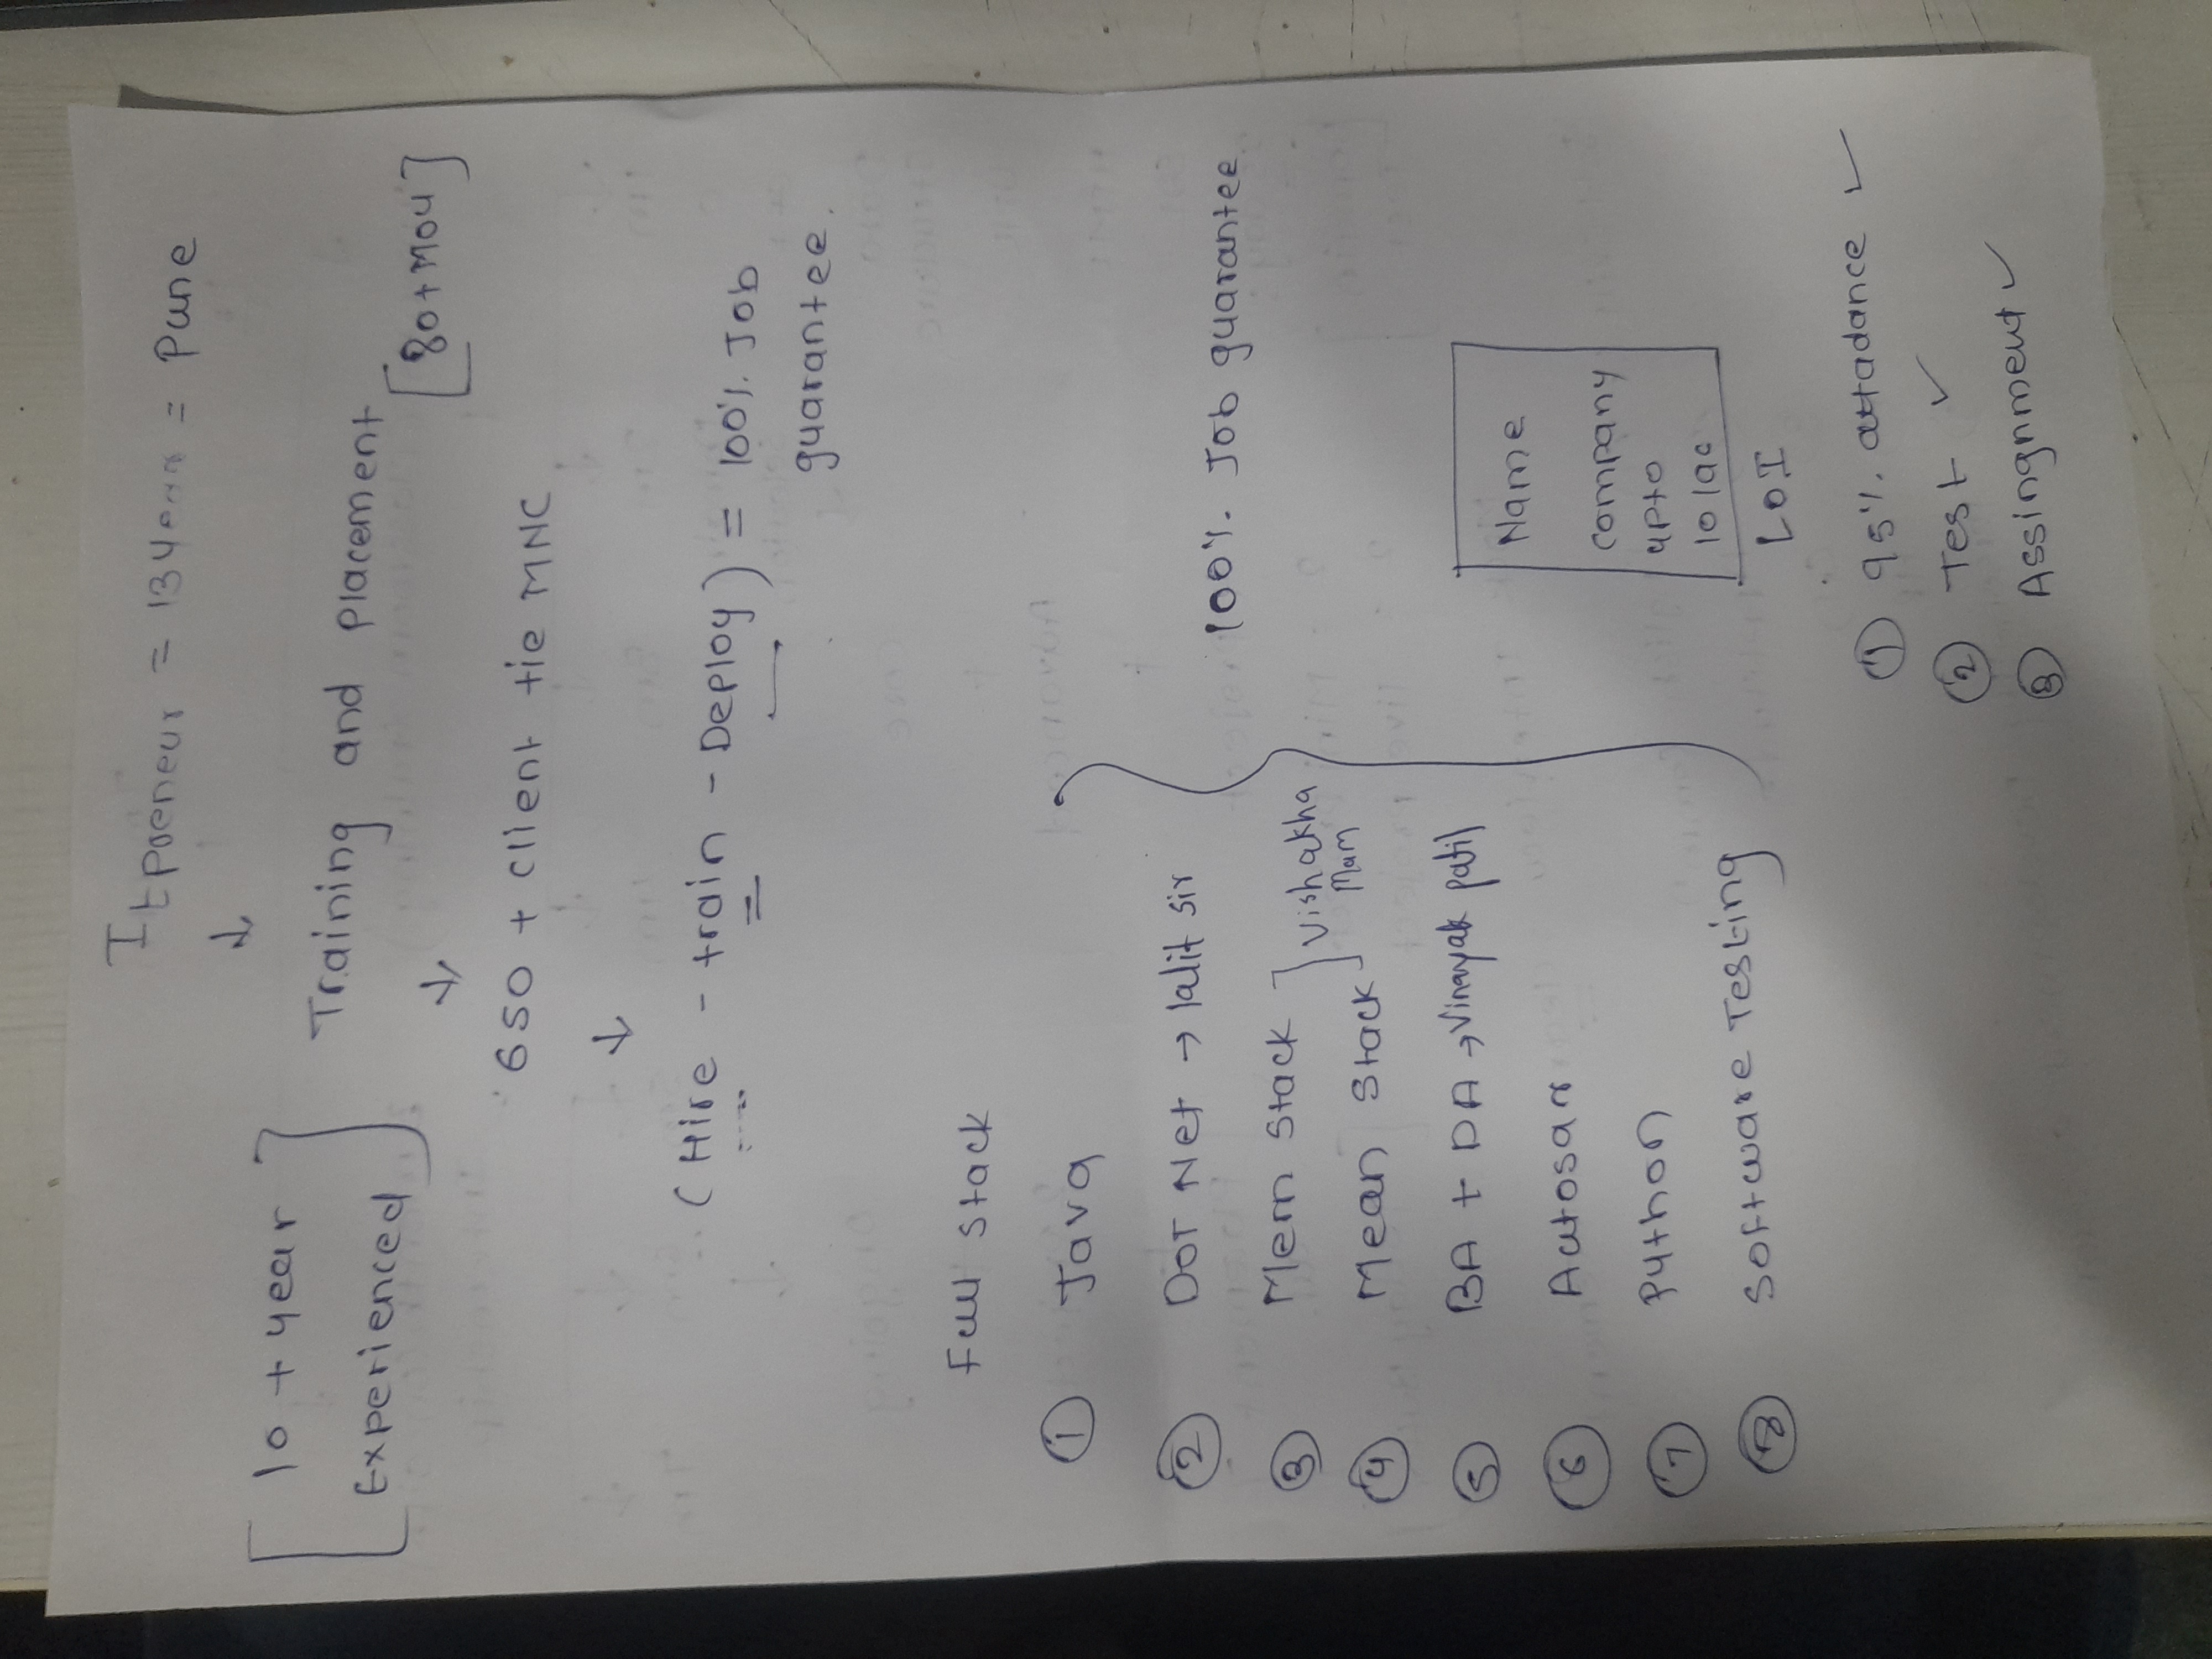 Itpreneur = 13 year = Pune
↓
[10 + year
Experienced]
Training and Placement
[80+MOU]
↓
650 + client tie MNC
↓
(Hire - train - Deploy) = 100% Job
guarantee.
Full stack
① Java
② DOT Net → lalit sir
③ Mern Stack
④ Mean Stack
} Vishakha
Mam
⑤ BA + DA → Vinayak patil
⑥ Autosar
⑦ Python
⑧ Software Testing
100% Job guarantee
Name
Company
upto
10 lac
LOI
① 95% attadance ✓
② Test ✓
③ Assingnment ✓